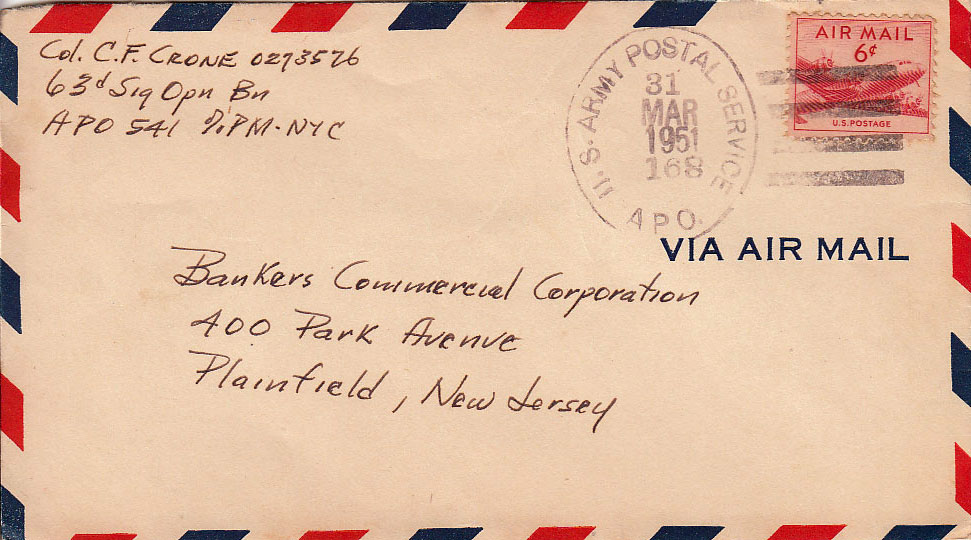 Col. C.F. CRONE 0273576
63d Sig Opn Bn
APO 541 % PM-NYC
U.S. ARMY POSTAL SERVICE
31
MAR
1951
168
APO.
AIR MAIL
6¢
U.S. POSTAGE
VIA AIR MAIL
Bankers Commercial Corporation
400 Park Avenue
Plainfield, New Jersey